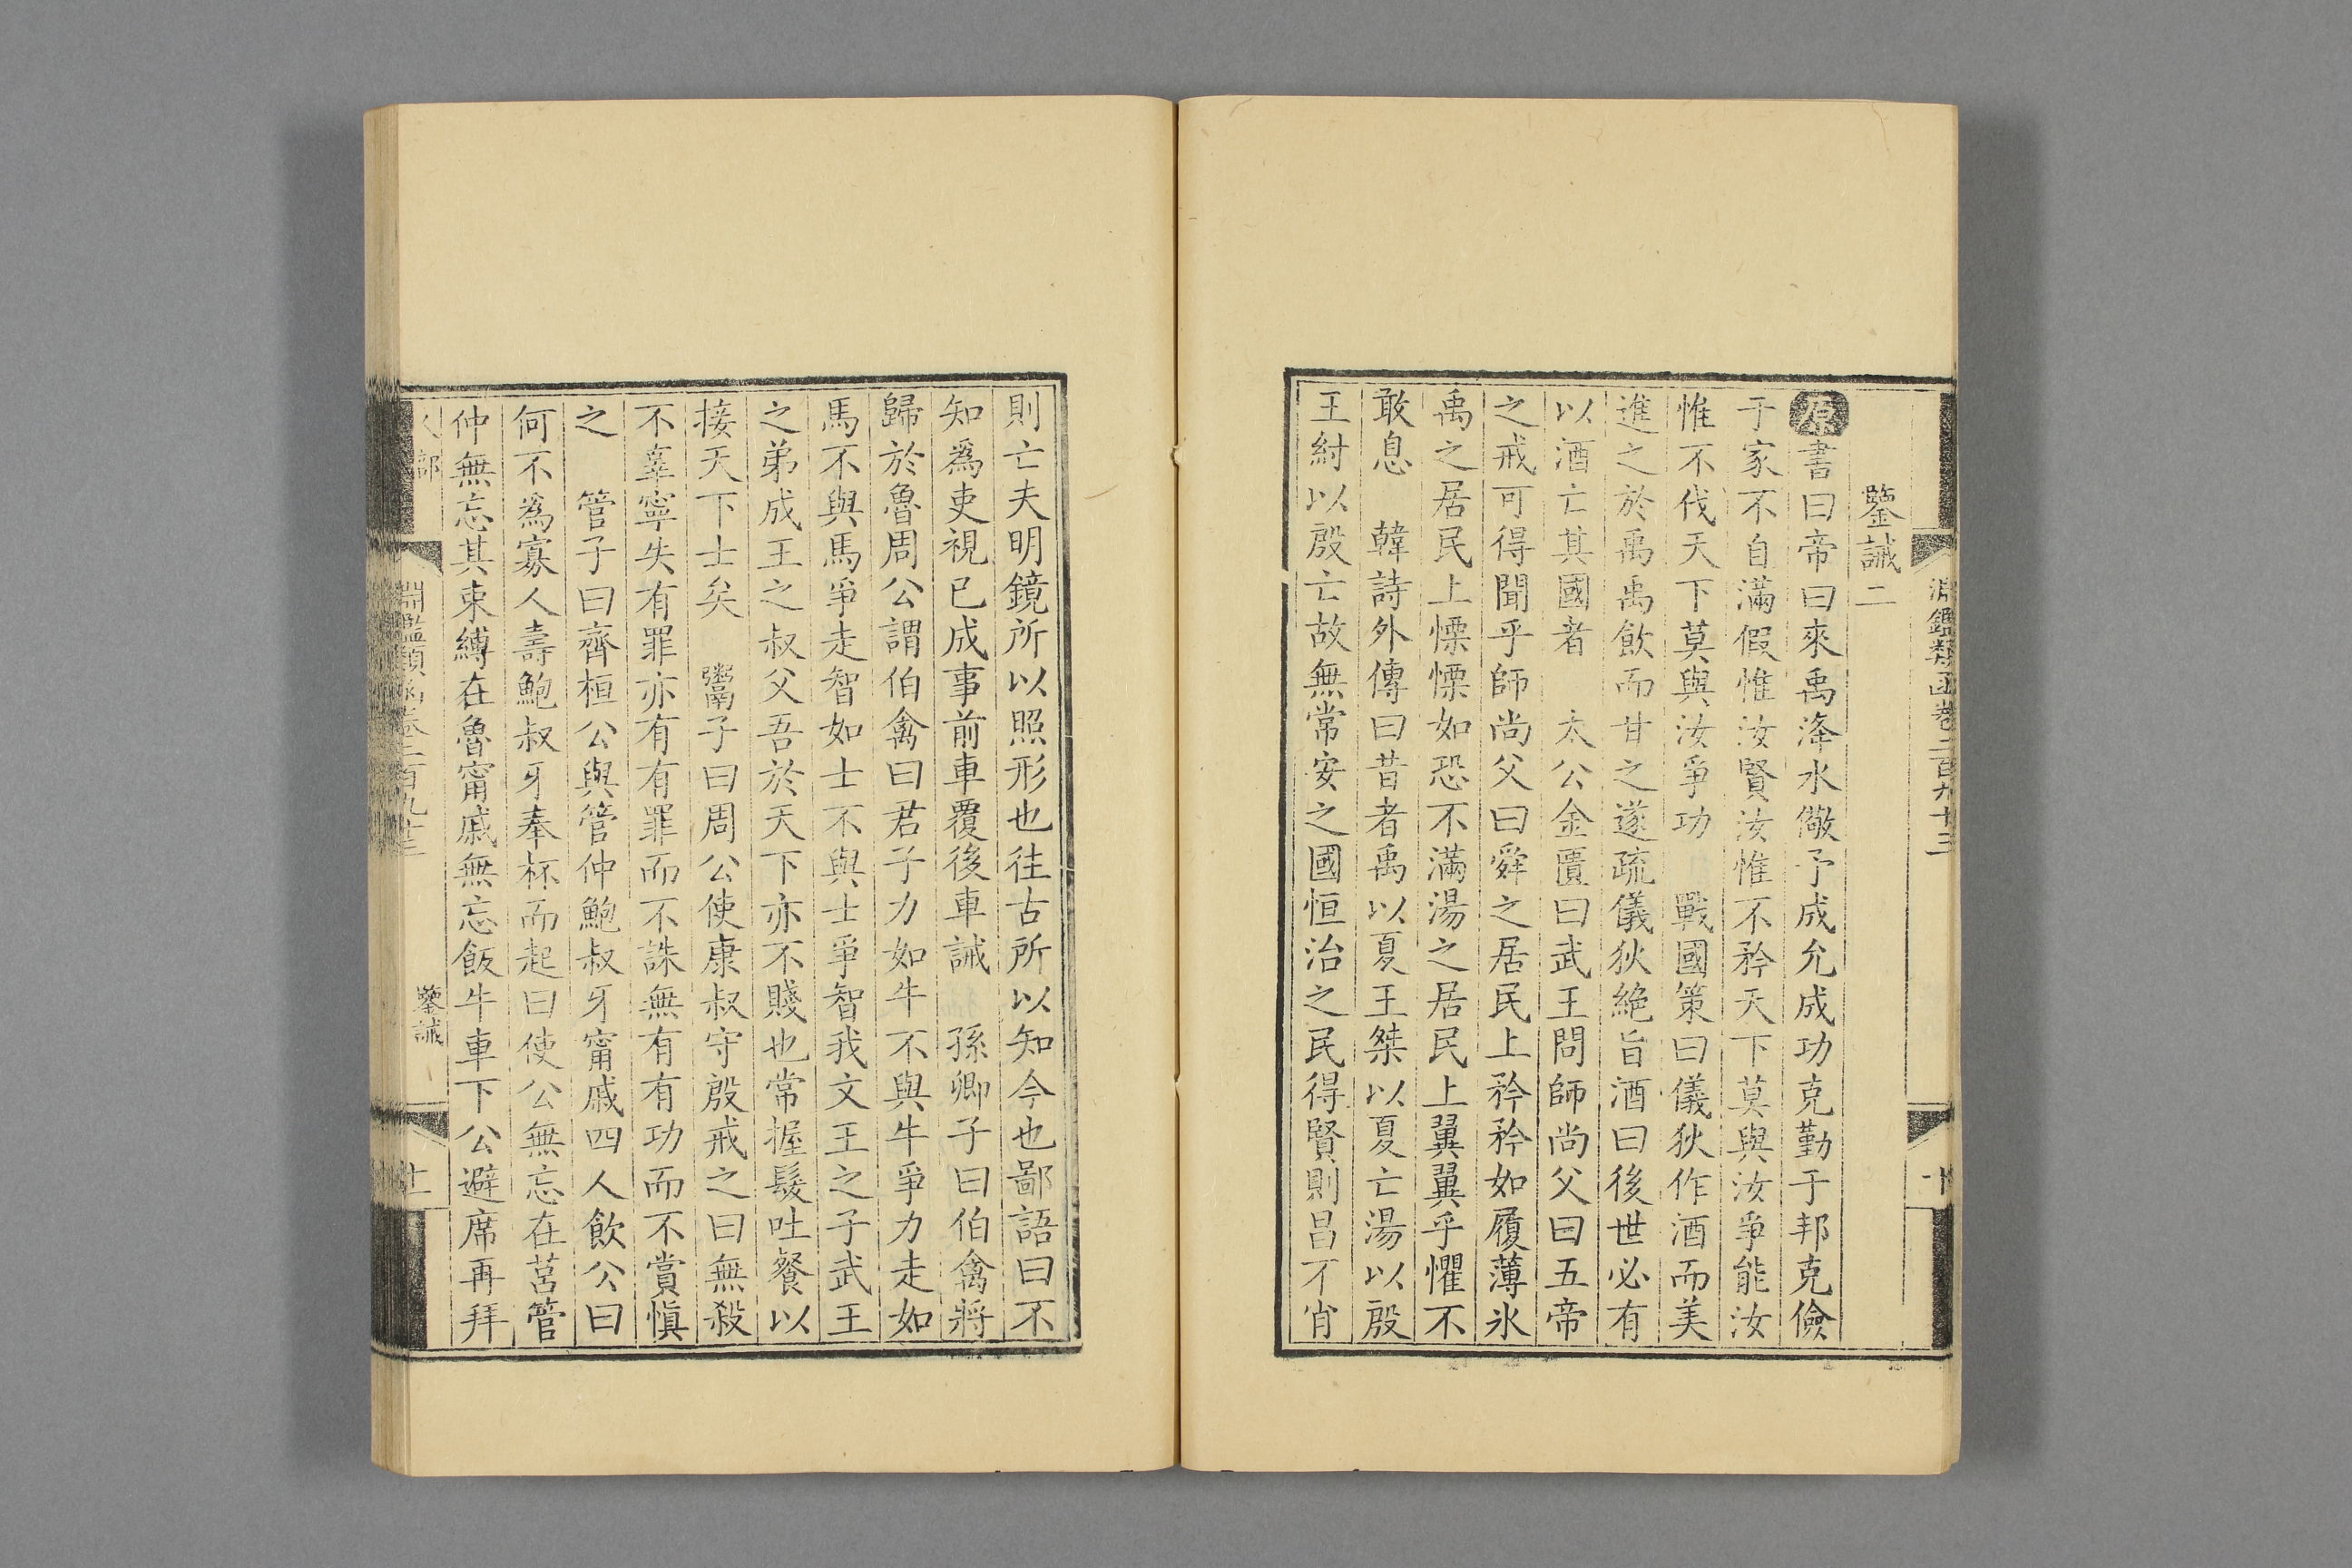 淵鑑類函卷二百九十三
十
鑒誡二
原書曰帝曰來禹洚水儆予成允成功克勤于邦克儉
于家不自滿假惟汝賢汝惟不矜天下莫與汝爭能汝
惟不伐天下莫與汝爭功　戰國策曰儀狄作酒而美
進之於禹禹飲而甘之遂疏儀狄絕旨酒曰後世必有
以酒亡其國者　太公金匱曰武王問師尚父曰五帝
之戒可得聞乎師尚父曰舜之居民上矜矜如履薄氷
禹之居民上慄慄如恐不滿湯之居民上翼翼乎懼不
敢息　韓詩外傳曰昔者禹以夏王桀以夏亡湯以殷
王紂以殷亡故無常安之國恒治之民得賢則昌不肖
則亡夫明鏡所以照形也往古所以知今也鄙語曰不
知為吏視已成事前車覆後車誡　孫卿子曰伯禽將
歸於魯周公謂伯禽曰君子力如牛不與牛爭力走如
馬不與馬爭走智如士不與士爭智我文王之子武王
之弟成王之叔父吾於天下亦不賤也常握髮吐餐以
接天下士矣　鬻子曰周公使康叔守殷戒之曰無殺
不辜寧失有罪亦有有罪而不誅無有有功而不賞慎
之　管子曰齊桓公與管仲鮑叔牙甯戚四人飲公曰
何不為寡人壽鮑叔牙奉杯而起曰使公無忘在莒管
仲無忘其束縛在魯甯戚無忘飯牛車下公避席再拜
人部
淵鑑類函卷二百九十三
鑒誡
十一